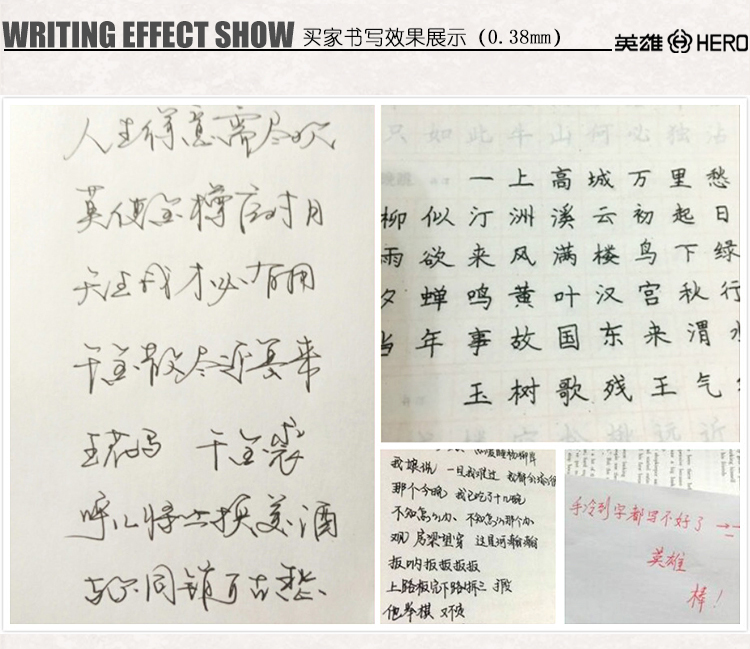 WRITING EFFECT SHOW 买家书写效果展示 (0.38mm)
英雄 HERO
人生得意需尽欢
莫使金樽空对月
天生我才必有用
千金散尽还复来
五花马 千金裘
呼儿将出换美酒
与尔同销万古愁
只如此牛山何必独沾
一上高城万里愁
柳似汀洲溪云初起日
雨欲来风满楼鸟下绿
夕蝉鸣黄叶汉宫秋行
当年事故国东来渭水
玉树歌残王气
我娘说 一旦我难过
那个今晚 我已吃了十几碗
不知怎么办、不知怎么那个办
望穿
他举棋
手冷到字都写不好了
英雄
棒!